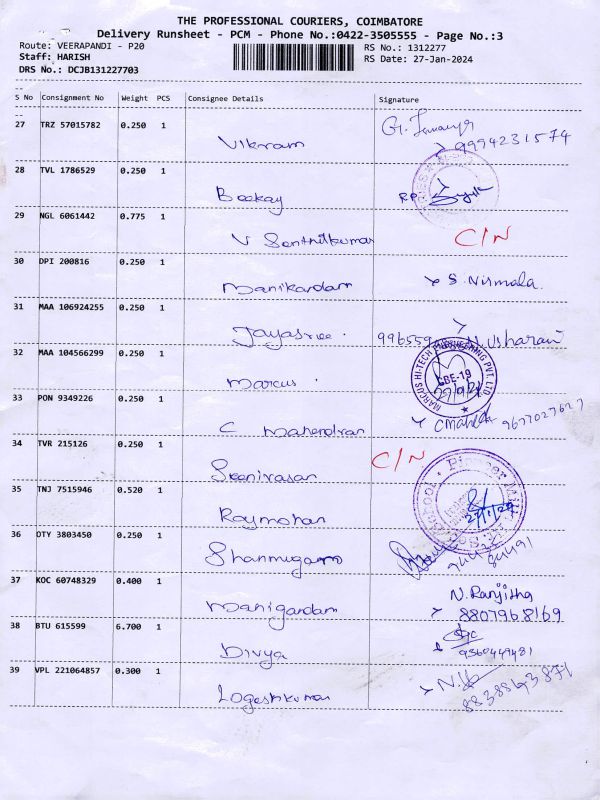 THE PROFESSIONAL COURIERS, COIMBATORE
Delivery Runsheet - PCM - Phone No.:0422-3505555 - Page No.:3
Route: VEERAPANDI - P20 RS No.: 1312277
Staff: HARISH RS Date: 27-Jan-2024
DRS No.: DCJB131227703
S No Consignment No Weight PCS Consignee Details Signature
27 TRZ 57015782 0.250 1
Vikram 9994231574
28 TVL 1786529 0.250 1
Beekay RP
29 NGL 6061442 0.775 1
V Senthilkumar C/N
30 DPI 200816 0.250 1
Manikandam S. Nirmala.
31 MAA 106924255 0.250 1
Jayasree. 996559
32 MAA 104566299 0.250 1
MARCUS HI-TECH ENGINEERING PVT. LTD
CBE-19
Marcus
33 PON 9349226 0.250 1
C Mahendran 9677027627
34 TVR 215126 0.250 1 C/N
Seenivasan
35 TNJ 7515946 0.520 1
Rajmohan
36 OTY 3803450 0.250 1
Shanmugam
37 KOC 60748329 0.400 1 N. Ranjitha
Manigandam 8807968169
38 BTU 615599 6.700 1
Divya 9360449481
39 VPL 221064857 0.300 1
Logeshkumar 8838843871